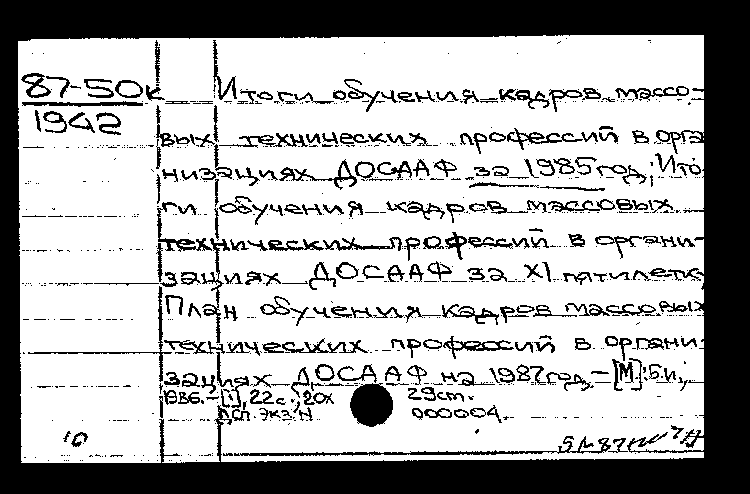 87-50к Итоги обучения кадров массо-
1942
вых технических профессий в орга
низациях ДОСААФ за 1985 год; Ито
ги обучения кадров массовых
технических профессий в органи-
зациях ДОСААФ за XI пятилетку
План обучения кадров массовых
технических профессий в органи-
зациях ДОСААФ на 1987 год.- [М]: Б.и.,
1986.- [1], 22 с.; 20х 29 cm.
Дсп. экз. N 000004.
10